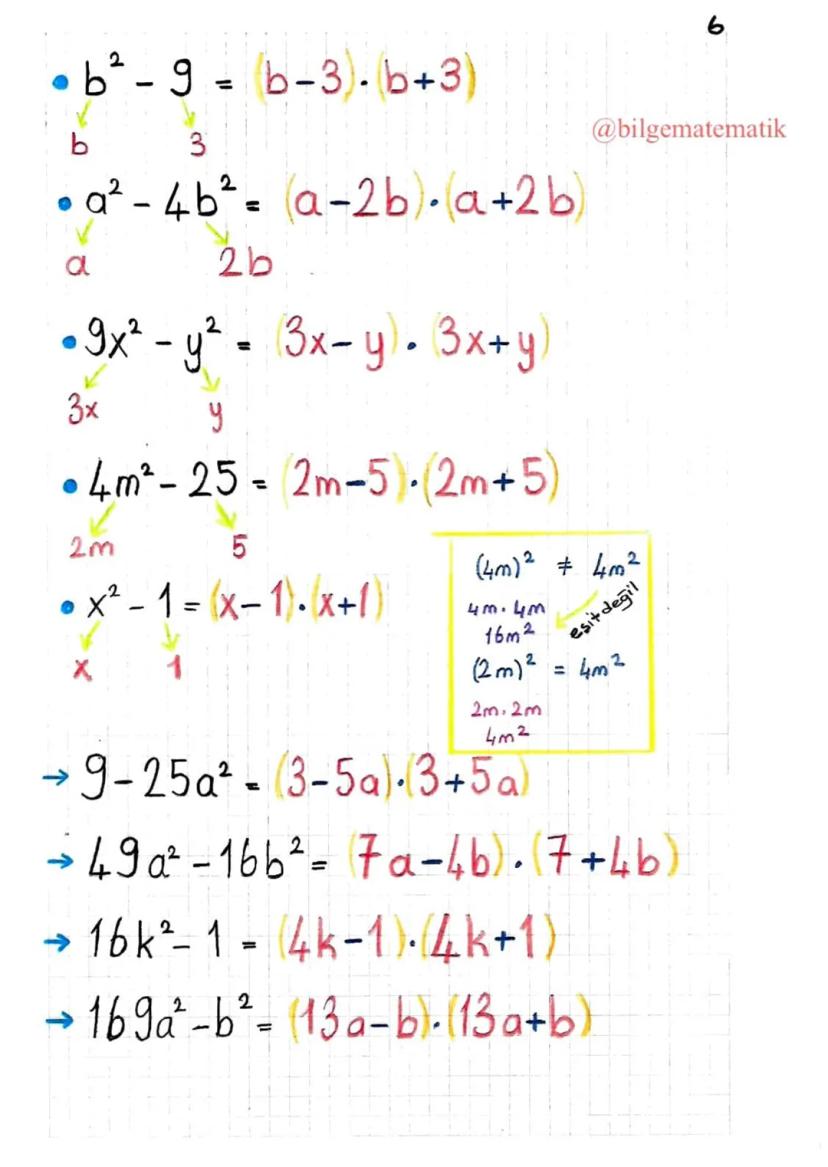 6
• b² - 9 = (b-3)·(b+3)
b 3
@bilgematematik
• a² - 4b² = (a-2b)·(a+2b)
a 2b
• 9x² - y² = (3x-y)·(3x+y)
3x y
• 4m² - 25 = (2m-5)·(2m+5)
2m 5
• x² - 1 = (x-1)·(x+1)
x 1
(4m)² ≠ 4m²
4m.4m
16m²
eşit değil
(2m)² = 4m²
2m.2m
4m²
→ 9-25a² = (3-5a)·(3+5a)
→ 49a² - 16b² = (7a-4b)·(7+4b)
→ 16k² - 1 = (4k-1)·(4k+1)
→ 169a² - b² = (13a-b)·(13a+b)